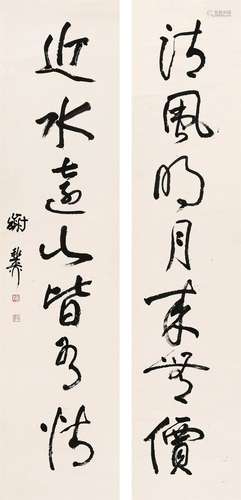 清風明月本無價
近水遠山皆有情
謝